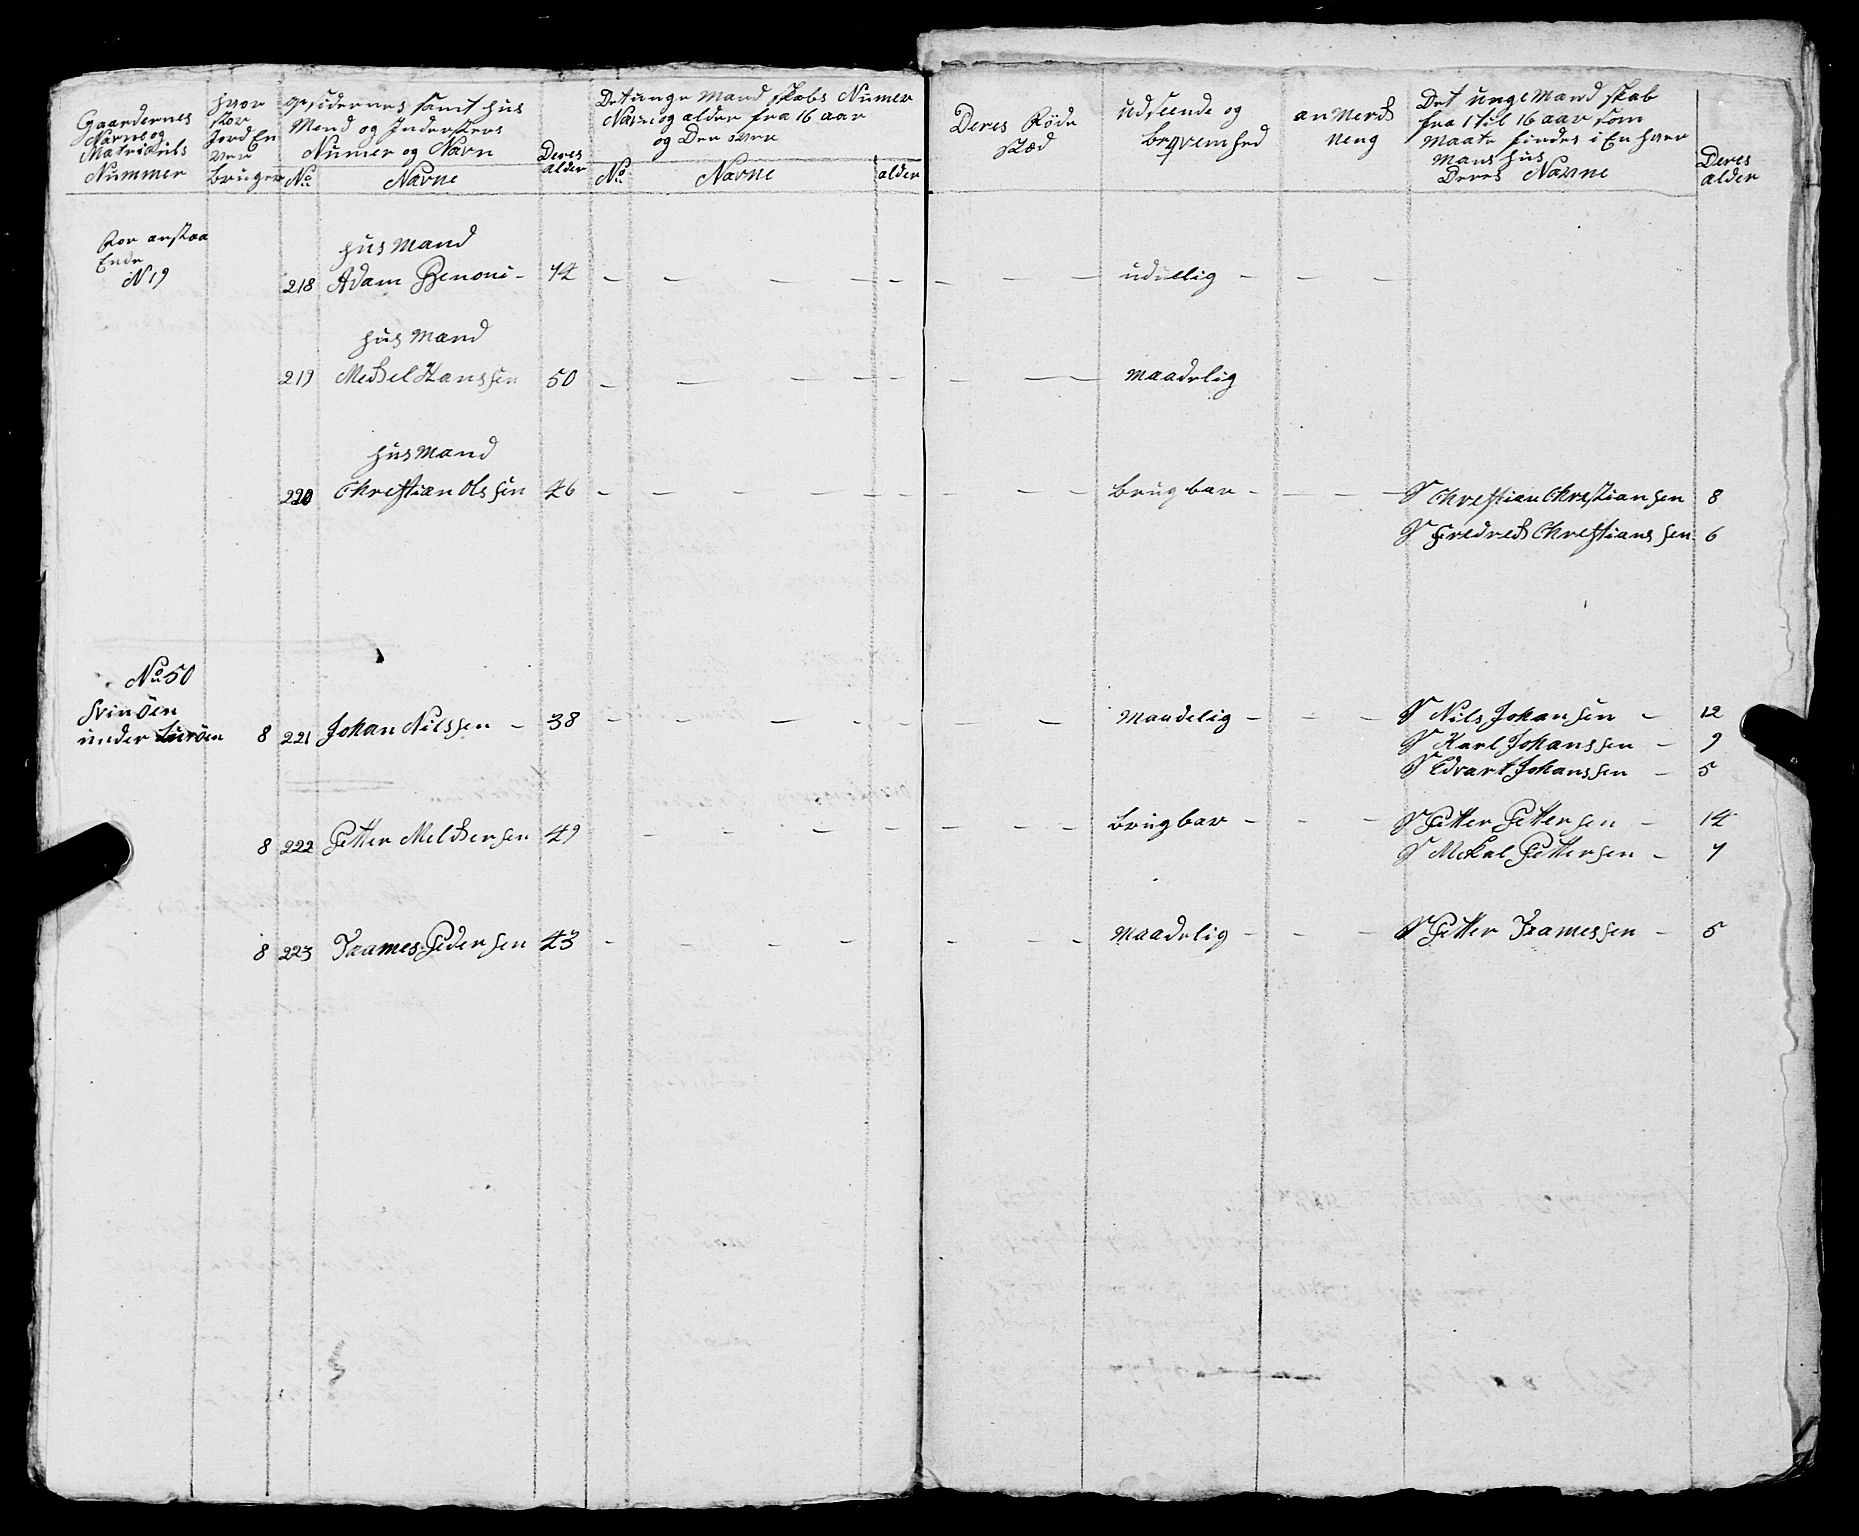 Gaardernes
Navne og
Matrikuls
Nummer
hvor
stor
Jord En
ver
bruger
opsidernes samt hus
Mend og Indersters
Numer og Navn
No
Navne
Deres
alder
Det unge Mand skabs Numer
Navn og alder fra 16 aar
og Der over
No
Navne
alder
Deres Røde
stæd
udseende og
beqvemhed
an Merck
neng
Det unge Mand skab
fra 1 til 16 aar som
Maate findes i En hver
Mans hus
Deres Navne
Deres
alder
For anstaa
Ende
N 19
hus Mand
218 Adam Benoni - 74 udullig
hus Mand
219 Meckel Hanssen 50 Maadelig
hus Mand
220 Christian Olssen 46 brugbar S Christian Christiansen 8
S Fredreck Christianssen 6
No 50
Svinöen
under Luröen 8 221 Johan Nilssen - 38 Maadelig S Nils Johansen - 12
S Karl Johanssen - 9
S Edvart Johanssen - 5
8 222 Petter Melckersen 49 brugbar S Petter Pettersen - 14
S Mekal Pettersen - 7
8 223 Jrames Pedersen 43 Maadelig S Petter Jramessen - 5